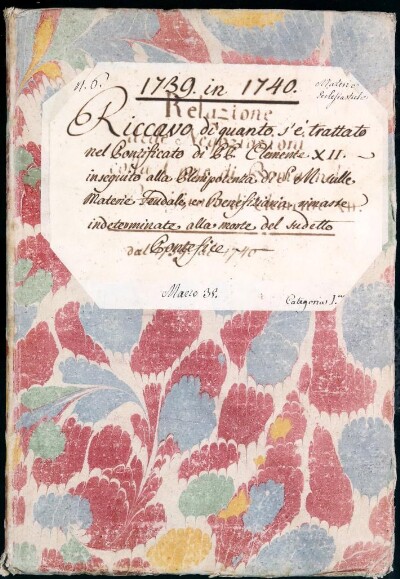 N. 6.
Materie
Ecclesiastiche
1739. in 1740.
Relazione
Riccavo di quanto s'è trattato
nel Pontificato di PP. Clemente XII.
inseguito alla Plenipotenza di S. M. sulle
Materie Feudali, ver Benefiziarie rimaste
indeterminate alla morte del sudetto
Pontefice 1740
Mazzo 38.
Categoria I.ma